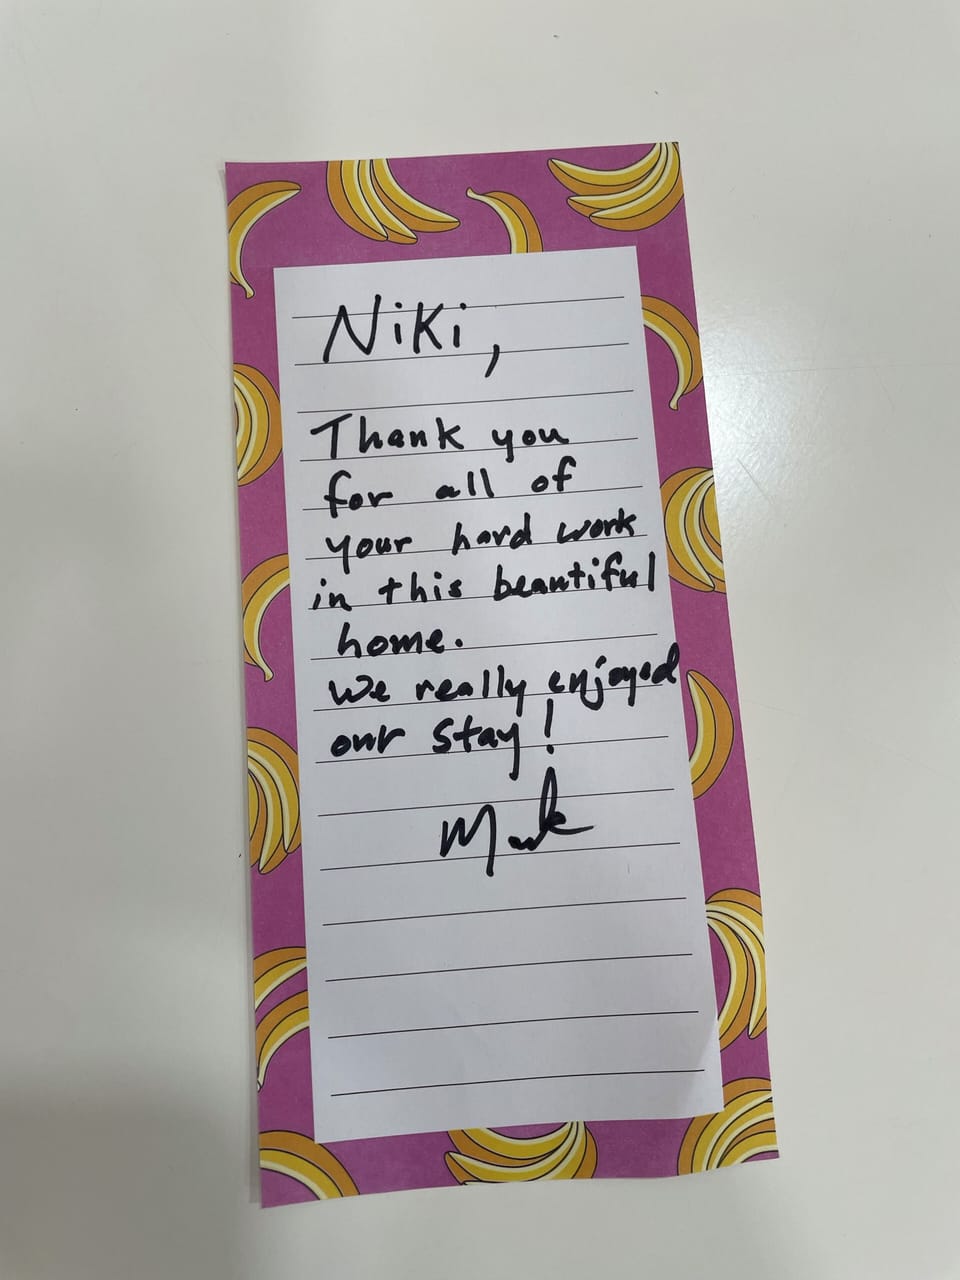 Niki,
Thank you
for all of
your hard work
in this beautiful
home.
We really enjoyed
our stay!
Mark